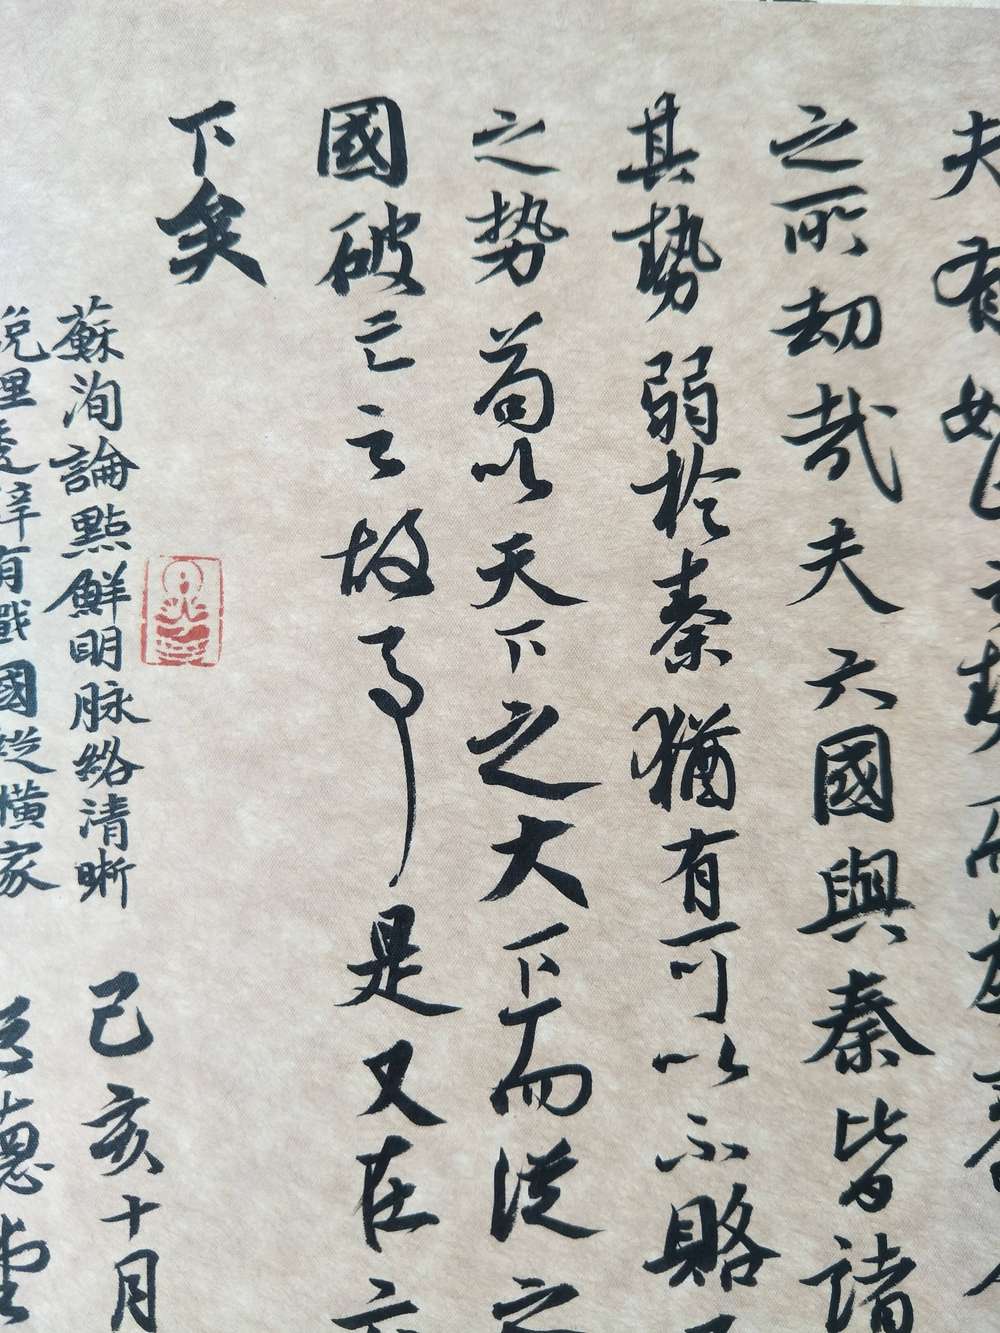 夫有如此之勢而為秦人
之所劫哉夫六國與秦皆諸
其勢弱於秦猶有可以不賂
之势苟以天下之大下而從之
國破亡之故事是又在六
下矣
蘇洵論點鮮明脉絡清晰 己亥十月
說理透辟有戰國縱橫家